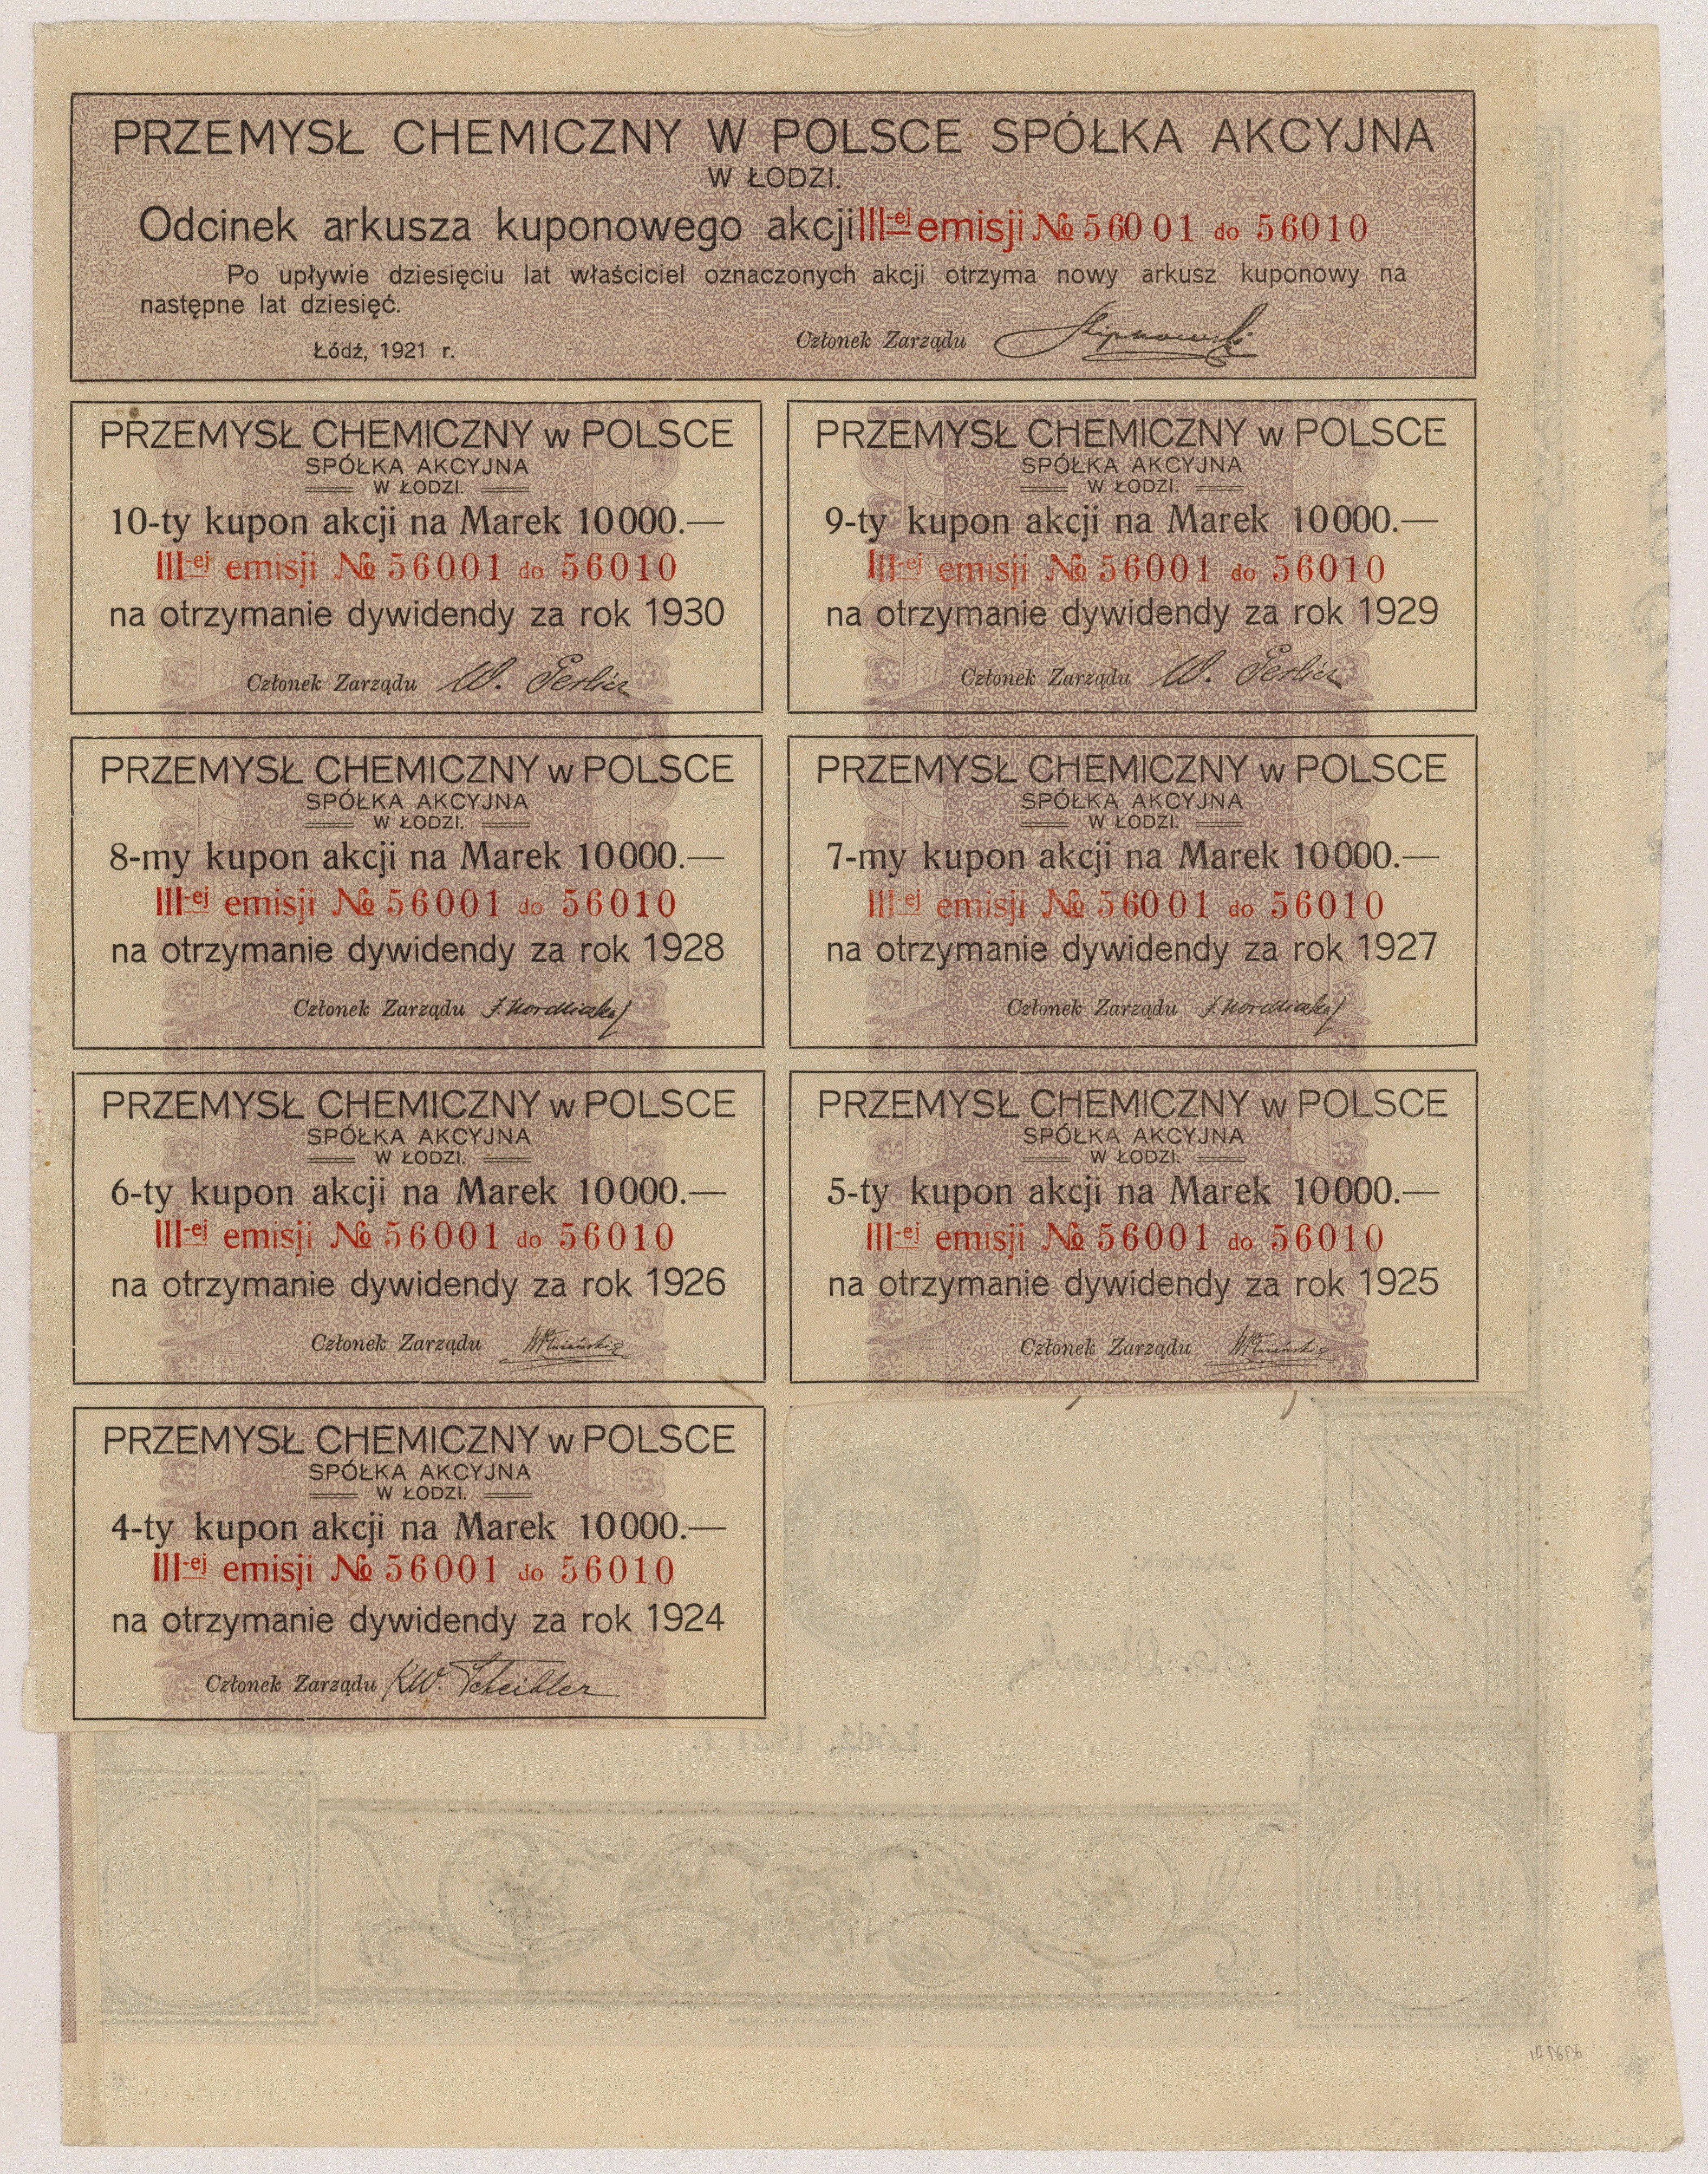 PRZEMYSŁ CHEMICZNY W POLSCE SPÓŁKA AKCYJNA
W ŁODZI.
Odcinek arkusza kuponowego akcji III-ej emisji № 56001 do 56010
Po upływie dziesięciu lat właściciel oznaczonych akcji otrzyma nowy arkusz kuponowy na
następne lat dziesięć.
Łódź, 1921 r.
Członek Zarządu
PRZEMYSŁ CHEMICZNY w POLSCE
SPÓŁKA AKCYJNA
W ŁODZI.
10-ty kupon akcji na Marek 10000.—
III-ej emisji № 56001 do 56010
na otrzymanie dywidendy za rok 1930
Członek Zarządu W. Gerlicz
PRZEMYSŁ CHEMICZNY w POLSCE
SPÓŁKA AKCYJNA
W ŁODZI.
9-ty kupon akcji na Marek 10000.—
III-ej emisji № 56001 do 56010
na otrzymanie dywidendy za rok 1929
Członek Zarządu W. Gerlicz
PRZEMYSŁ CHEMICZNY w POLSCE
SPÓŁKA AKCYJNA
W ŁODZI.
8-my kupon akcji na Marek 10000.—
III-ej emisji № 56001 do 56010
na otrzymanie dywidendy za rok 1928
Członek Zarządu
PRZEMYSŁ CHEMICZNY w POLSCE
SPÓŁKA AKCYJNA
W ŁODZI.
7-my kupon akcji na Marek 10000.—
III-ej emisji № 56001 do 56010
na otrzymanie dywidendy za rok 1927
Członek Zarządu
PRZEMYSŁ CHEMICZNY w POLSCE
SPÓŁKA AKCYJNA
W ŁODZI.
6-ty kupon akcji na Marek 10000.—
III-ej emisji № 56001 do 56010
na otrzymanie dywidendy za rok 1926
Członek Zarządu
PRZEMYSŁ CHEMICZNY w POLSCE
SPÓŁKA AKCYJNA
W ŁODZI.
5-ty kupon akcji na Marek 10000.—
III-ej emisji № 56001 do 56010
na otrzymanie dywidendy za rok 1925
Członek Zarządu
PRZEMYSŁ CHEMICZNY w POLSCE
SPÓŁKA AKCYJNA
W ŁODZI.
4-ty kupon akcji na Marek 10000.—
III-ej emisji № 56001 do 56010
na otrzymanie dywidendy za rok 1924
Członek Zarządu KW. Scheibler
SPÓŁKA
AKCYJNA
Skarbnik:
Łódź, 1921 r.
10000
10000